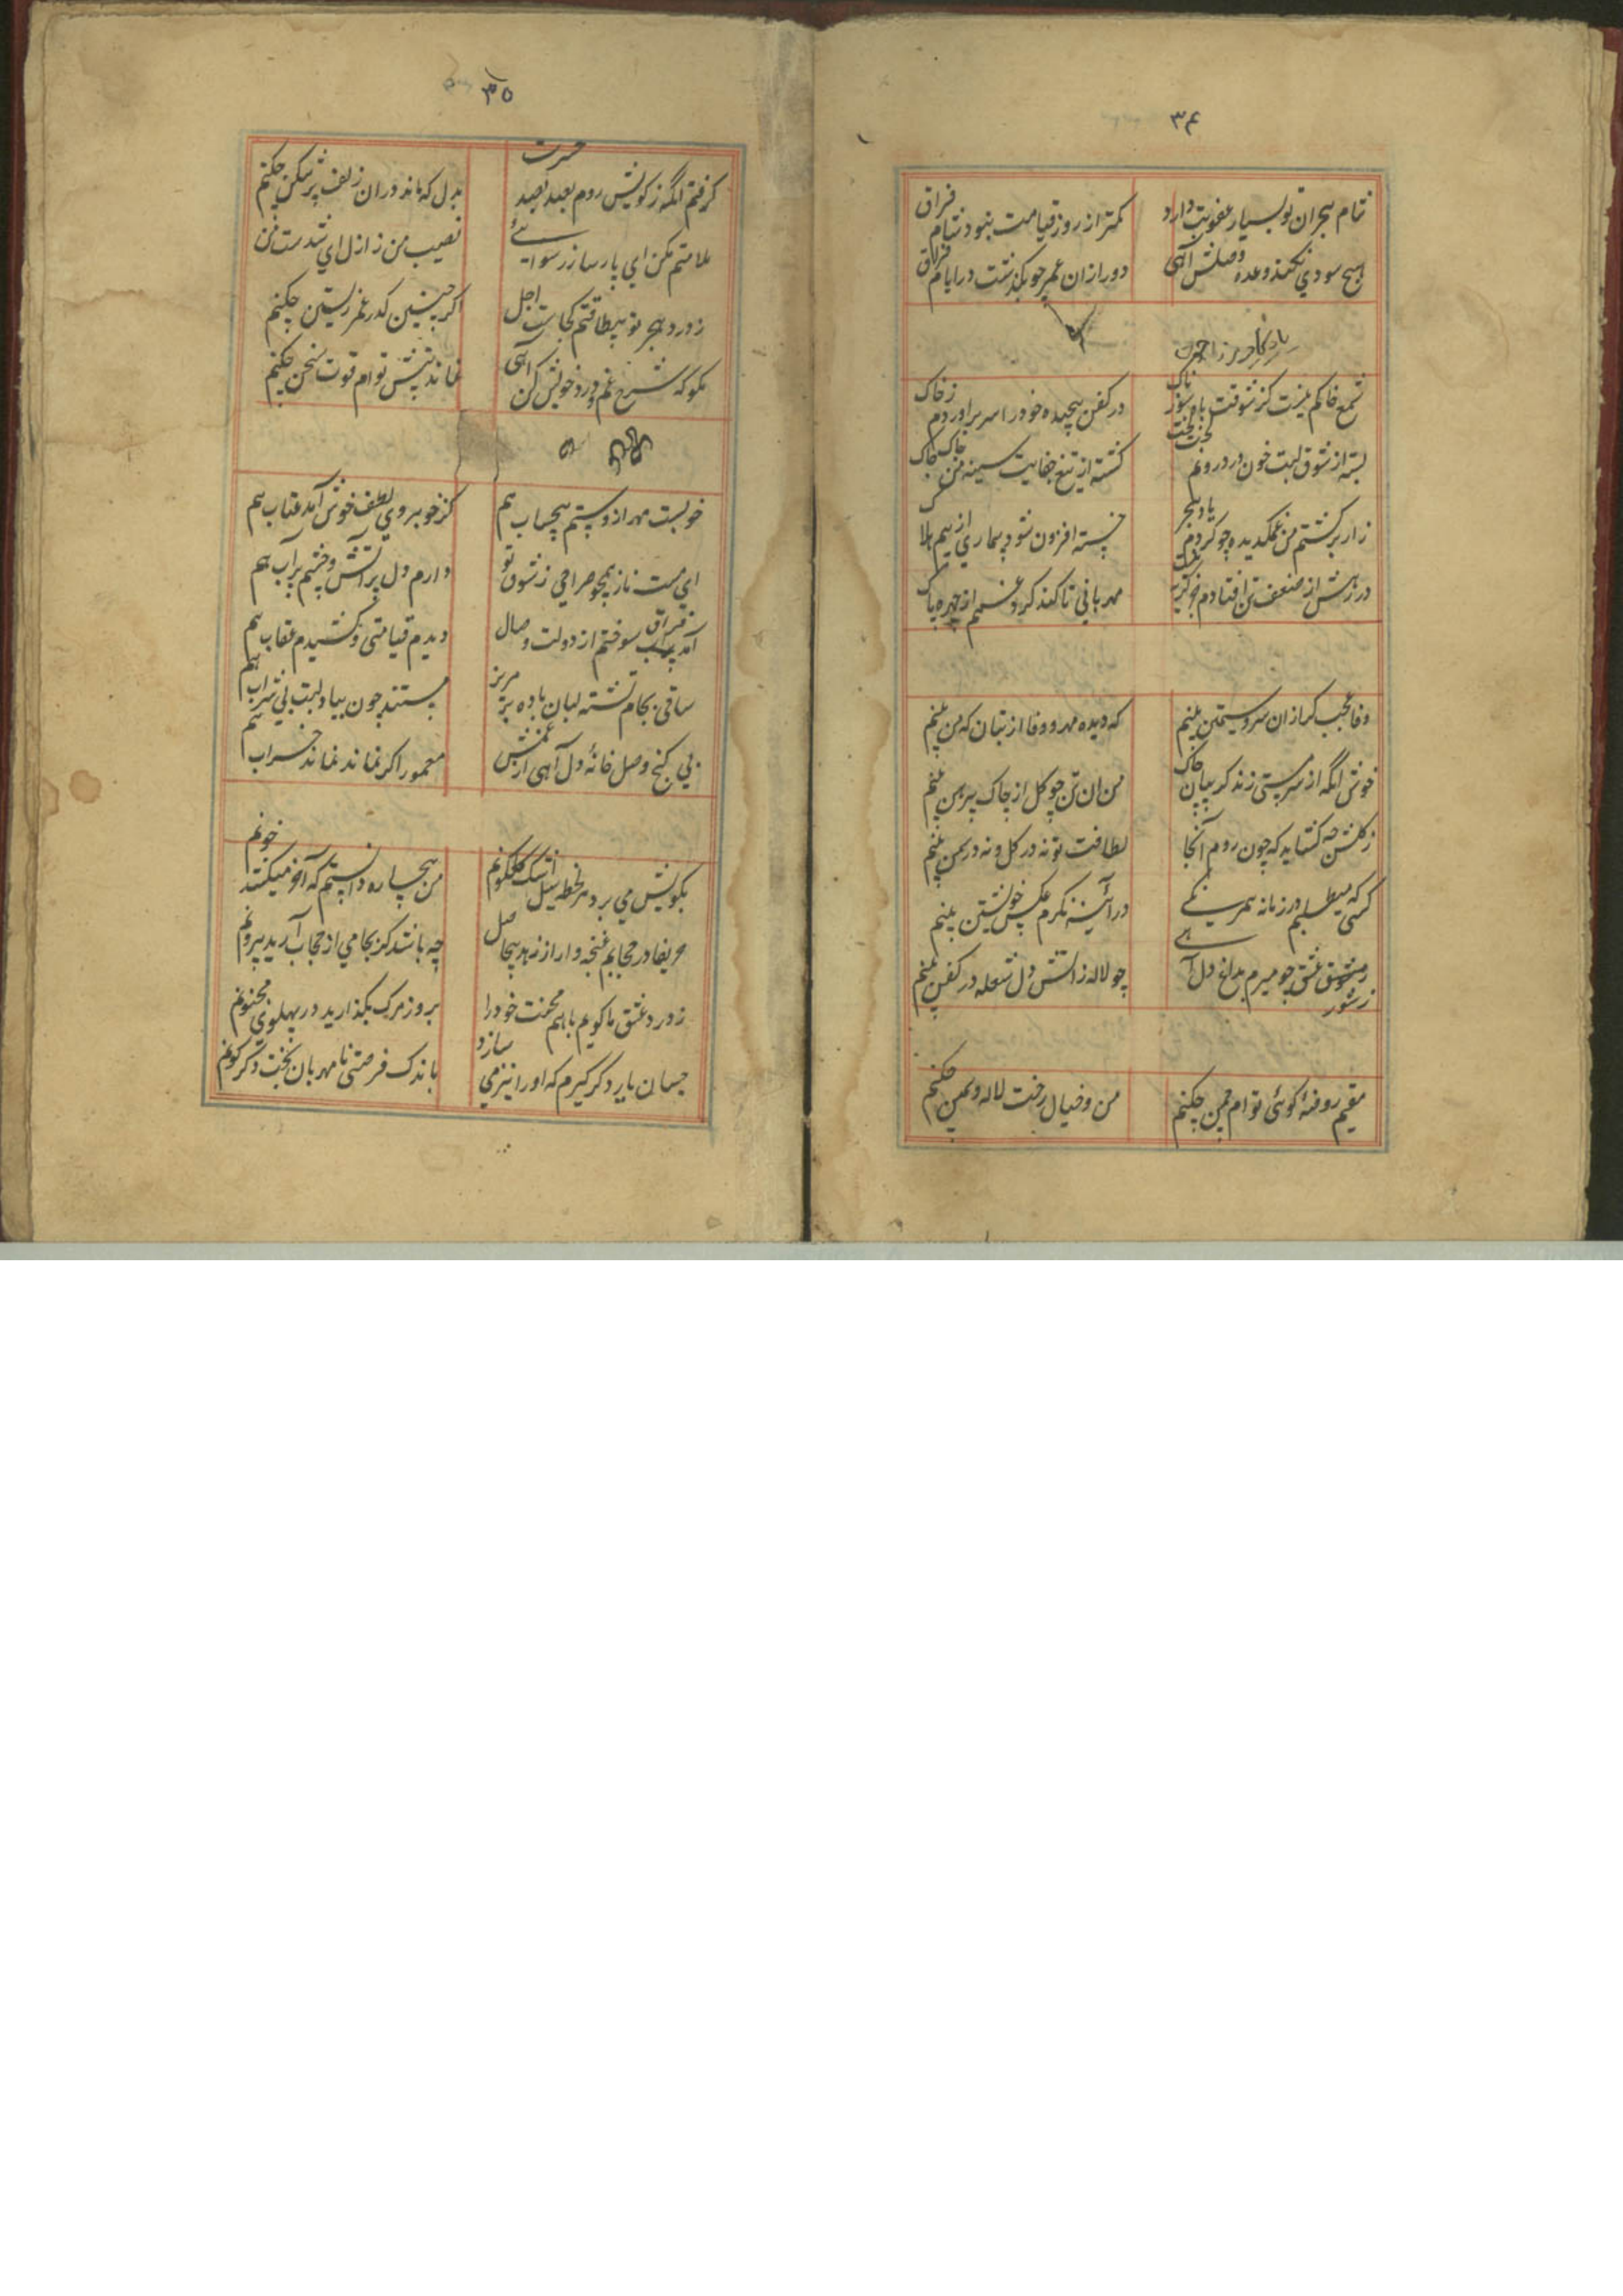 ۳۴
شام هجران تو بسیار عقوبت دارد
کمتر از روز قیامت نبود شام فراق
هیچ سودي نکند وعده وصلش آهی
دور ازان عمر چو بگذشت در ایام فراق
شمع خاکم نیست کز شوقت باه سوزناک
در کفن پیچیده خود را سر براوردم ز خاک
بسته از شوق لبت خون در درونم لخت لخت
گشته از تیغ جفایت سینه من چاک چاک
زار برگشتم من غمدیده چو کردم یاد هجر
خسته افزون شود بیماري از بیم هلاک
در رهش از ضعف تن افتادم
مهربانی تا کند گرد غم از چهره پاک
وفا عجب که ازان سرو سیمتن بینم
که دیده مهر و وفا از بتان که من بینم
خوش انگه از سر مستی زند گریبان چاک
من ان تن چو گل از چاک پیرهن بینم
ز گلشن چه گشاید که چون روم آنجا
لطافت تو نه در گل و نه در سمن بینم
کسی که میطلبم در زمانه همرنگی
در آئینه نگرم عکس خویشتن بینم
عشق چو میرم بداغ دل آهی
چو لاله ز اتش دل شعله در کفن بینم
مقیم روضهٔ کوئی توام چمن چکنم
من و خیال رخت لاله و سمن چکنم
۳۵
گرفتم انگه ز کویش روم بصد حسرت
بدل که ماند دران زلف پر شکن چکنم
ملامتم مکن اي پارسا ز رسوایی
نصیب من ز ازل اي شدست من
ز درد هجر تو بیطاقتم کجاست اجل
اگر چنین گذرد عمر زیستن چکنم
مگو که شرح غم و درد خویش کن آهی
نماند پیش توام قوت سخن چکنم
خوبست مهر از و ستم بیحساب هم
کز خوبروي لطف خوش آمد عتاب هم
اي مست ناز همچو صراحی ز شوق تو
دارم دل پر آتش و چشم پر آب هم
سوختم از دولت وصال
دیدم قیامتی و کشیدم عقاب هم
ساقی بجام تشنه لبان باده مریز
مستند چون بیاد لبت بی شراب هم
بی گنج وصل خانهٔ دل آهی از غمش
معمور اگر نماند نماند خراب هم
بکویش می برد هر لحظه سیل اشک گلگونم
من بیچاره دانستم که آخر میکشد خونم
حریفا در حجابم غنچه وار از زهد بیحاصل
چه باشد کز بجامی از حجاب آرید بیرونم
ز درد عشق تا گویم باهم محنت خود را
بروز مرگ بگذارید در پهلوی مجنونم
چسان یار دگر گیرم که او را نیز می سازد
باندک فرصتی نامهربان بخت دگرگونم